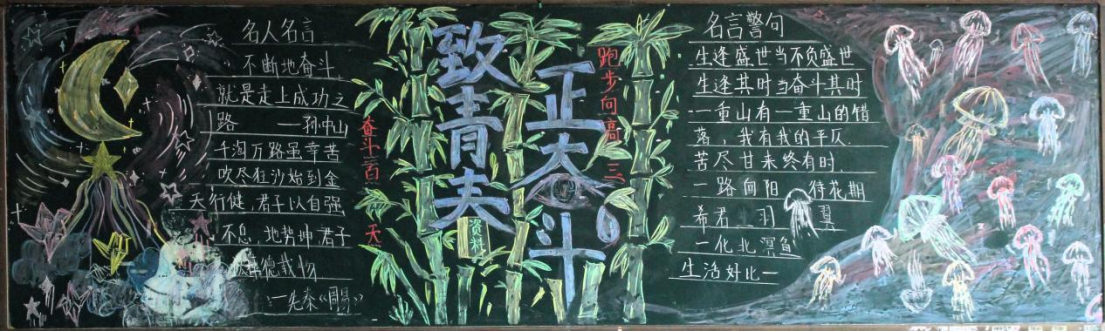 名人名言
不断地奋斗,
就是走上成功之
路 ——孙中山
千淘万路虽辛苦
吹尽狂沙始到金
天行健,君子以自强
不息,地势坤君子
德载物
——先秦《周易》
奋斗百天
致青夫
资料
正大斗
跑步向高三
名言警句
生逢盛世当不负盛世
生逢其时当奋斗其时
一重山有一重山的错
落,我有我的平仄.
苦尽甘来终有时.
一路向阳 待花期
希君 羽 翼
一化北溟鱼
生活好比一